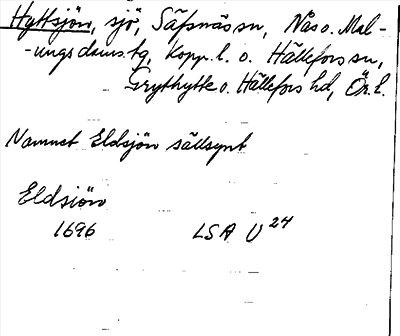 Hyttsjön, sjö, Säfsnäs sn, Nås o. Mal-
-ungs doms. tg, Kopp. l. o. Hällefors sn,
Grythytte o. Hällefors hd, Ör. l.
Namnet Eldsjön sällsynt
Eldsiön
1696 LSA U 24